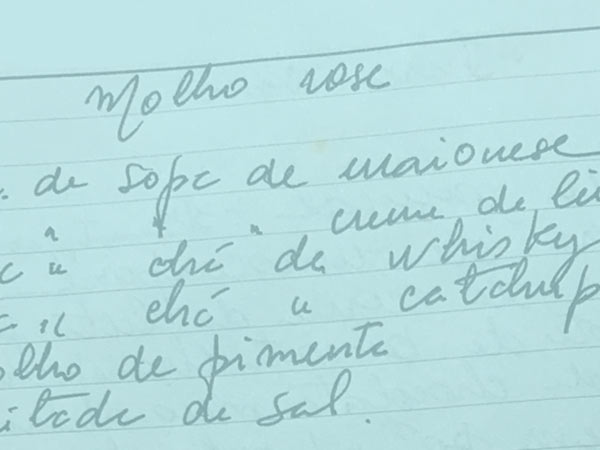 Molho rose
. de sopa de maionese
" " " creme de lei
c " chá de whisky
c " chá " catchup
olho de pimenta
itada de sal.